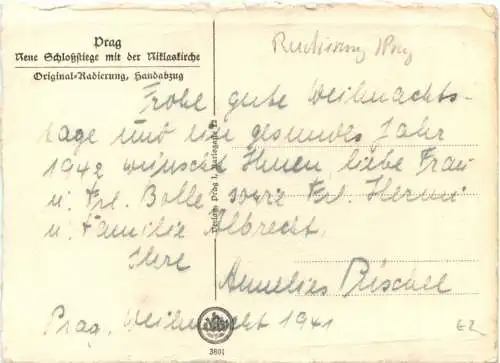 Prag
Neue Schloßstiege mit der Niklaskirche
Original-Radierung, Handabzug
Radierung Prag
Frohe gute Weihnachts-
tage und ein gesundes Jahr
1942 wünscht Ihnen, liebe Frau
u. Frl. Bolle sowie Frl. Hermi
u. Familie Albrecht.
Ihre
Annelies Püschel
Prag, Weihnacht 1941
Prag I, Karlsgasse
3801